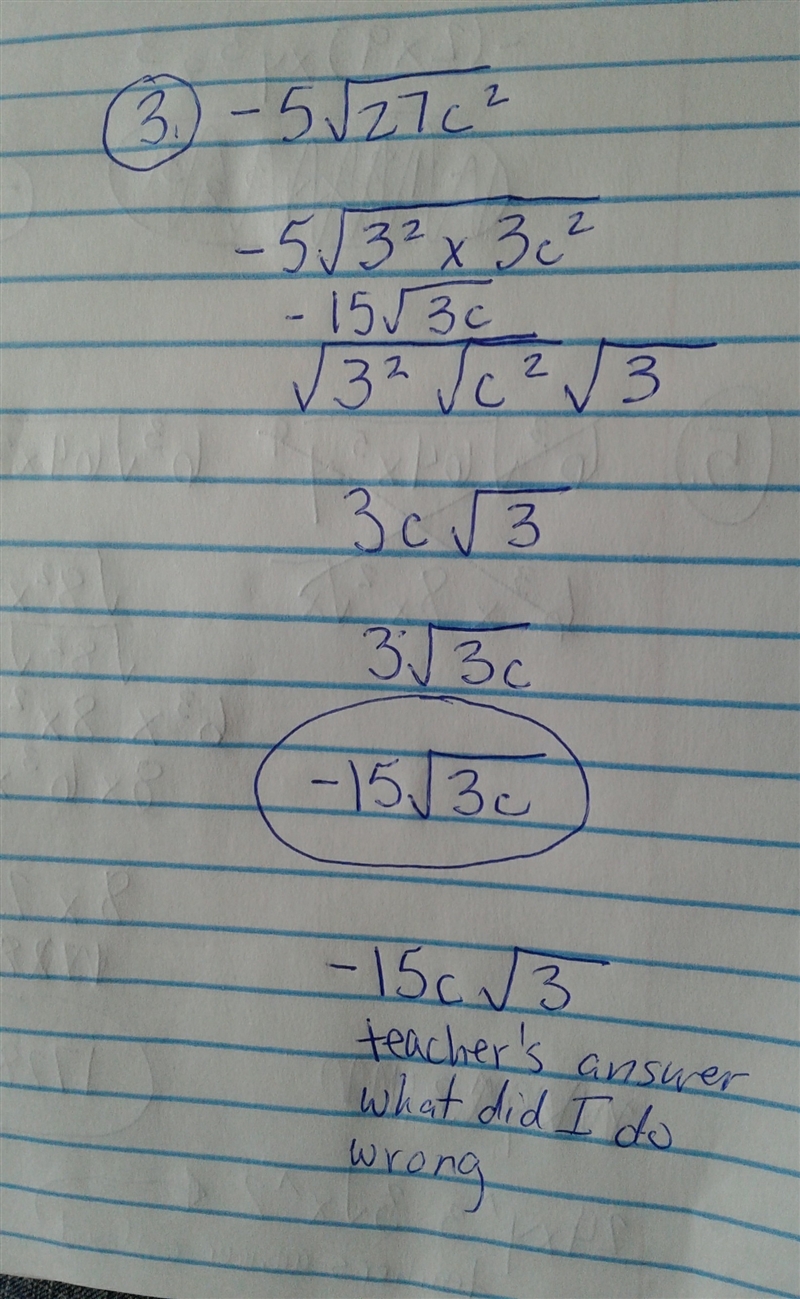 3. -5√27c²
-5√3² x 3c²
-15√3c
√3² √c² √3
3c√3
3√3c
-15√3c
-15c√3
teacher's answer
what did I do
wrong